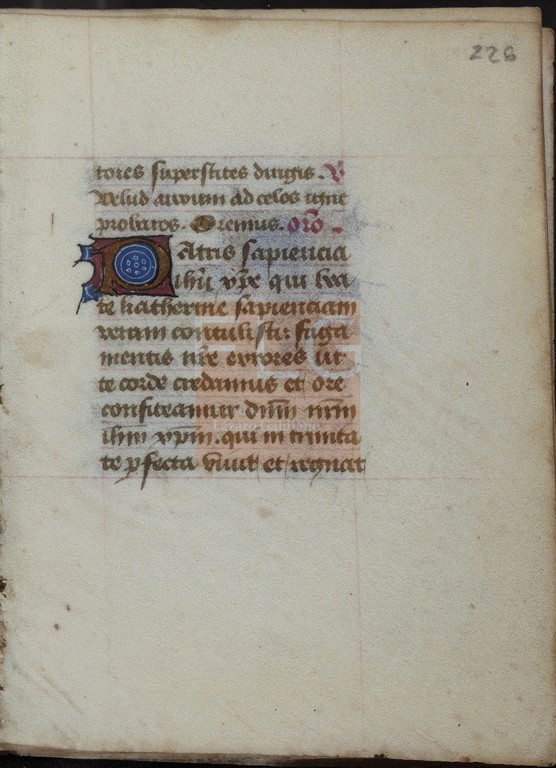 226
tores superstites dirigis. V
Velud aurum ad celos igne
probatos. Oremus. oro
Patris sapiencia
ihu xpe qui bea
te katherine sapienciam
veram contulisti: fuga
mentis nre errores ut
te corde credamus et ore
confiteamur dnm nrm
ihm xpm. qui in trinita
te pfecta vivit et regnat